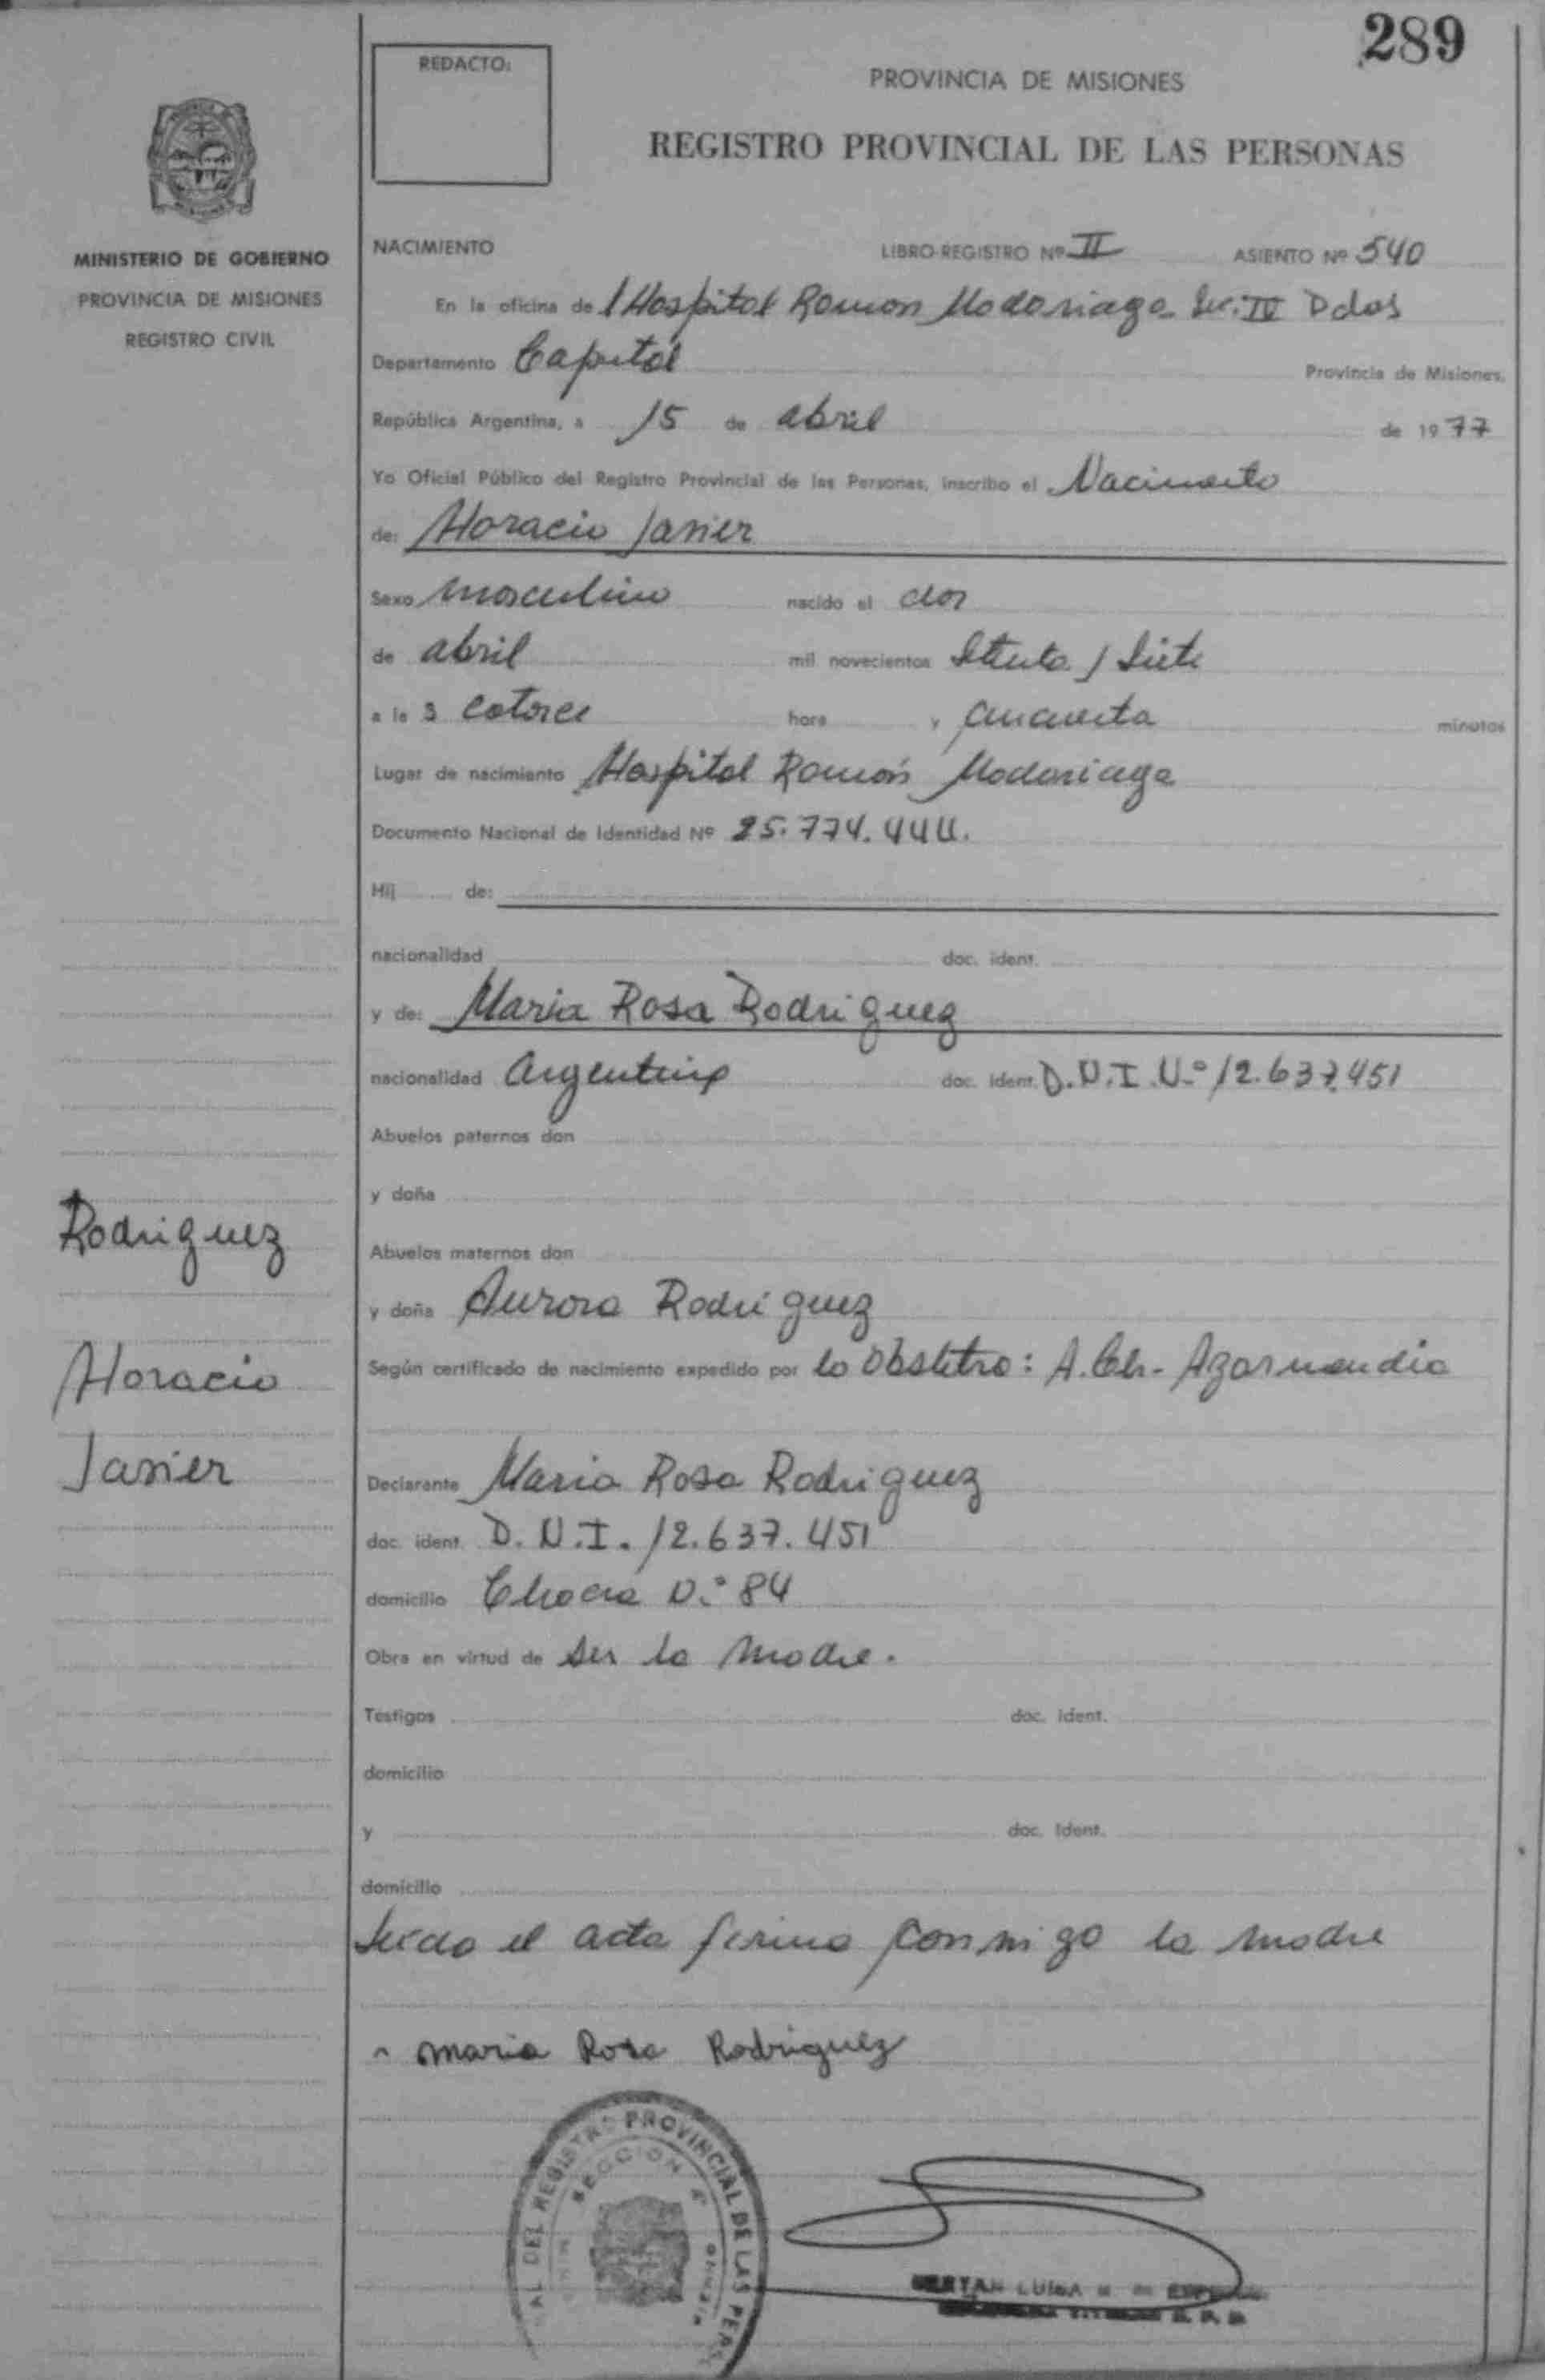 289
REDACTO:
PROVINCIA DE MISIONES
REGISTRO PROVINCIAL DE LAS PERSONAS
MINISTERIO DE GOBIERNO
PROVINCIA DE MISIONES
REGISTRO CIVIL
NACIMIENTO LIBRO-REGISTRO Nº II ASIENTO Nº 540
En la oficina de l Hospital Ramón Madariaga Sec. IV Pdas
Departamento Capital Provincia de Misiones,
República Argentina, a 15 de abril de 1977
Yo Oficial Público del Registro Provincial de las Personas, inscribo el Nacimiento
de: Horacio Javier
Sexo masculino nacido el dos
de abril mil novecientos setenta y siete
a la s catorce hora y cincuenta minutos
Lugar de nacimiento Hospital Ramón Madariaga
Documento Nacional de Identidad Nº 25.774.444.
Hij de:
nacionalidad doc. ident.
y de: Maria Rosa Rodriguez
nacionalidad Argentina doc. ident. D.N.I. N.º 12.637.451
Abuelos paternos don
y doña
Abuelos maternos don
y doña Aurora Rodriguez
Según certificado de nacimiento expedido por la Obstetra:
Rodriguez
Horacio
Javier
Declarante Maria Rosa Rodriguez
doc. ident. D.N.I. 12.637.451
domicilio N.º 84
Obra en virtud de ser la madre.
Testigos doc. ident.
domicilio
y doc. Ident.
domicilio
Leida el acta firma conmigo la madre
maria Rosa Rodriguez
DEL REGISTRO PROVINCIAL DE LAS PER
SECCION
LUISA